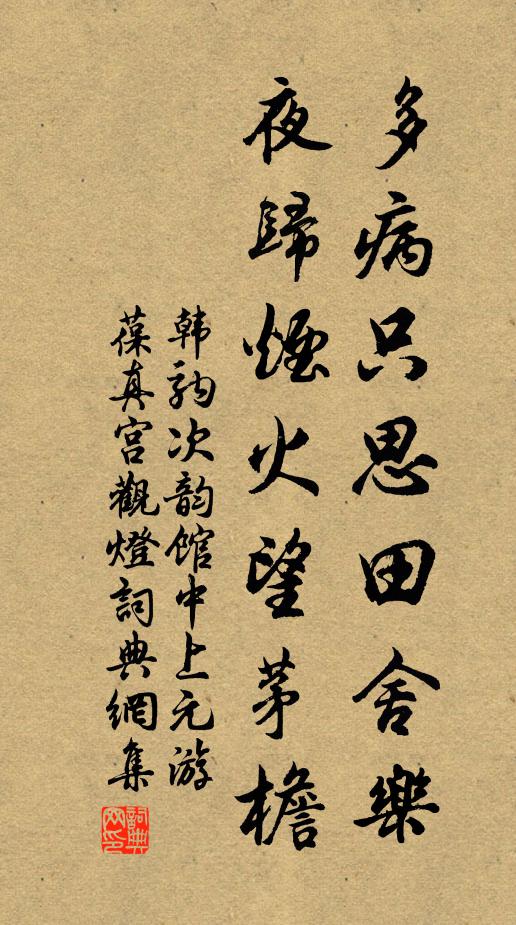 多病只思田舍樂
夜歸煙火望茅檐
韩駒次韵館中上元游
葆真宫觀燈詞典網集
詞典网印